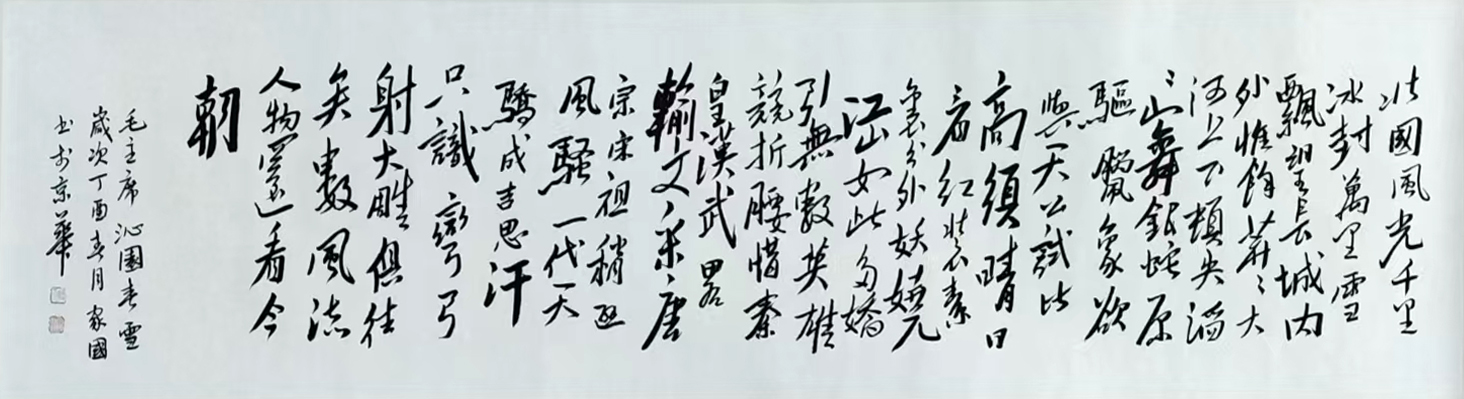 北國風光千里
冰封萬里雪
飄望長城內
外惟餘莽〻大
河上下頓失滔
〻山舞銀蛇原
驅臘象欲
與天公試比
高須晴日
看紅裝素
裹分外妖嬈
江山如此多嬌
引無數英雄
競折腰惜秦
皇漢武畧
輸文采唐
宗宋祖稍遜
風騷一代天
驕成吉思汗
只識彎弓
射大雕俱往
矣數風流
人物還看今
朝
毛主席沁園春雪
歲次丁酉春月家國
書於京華